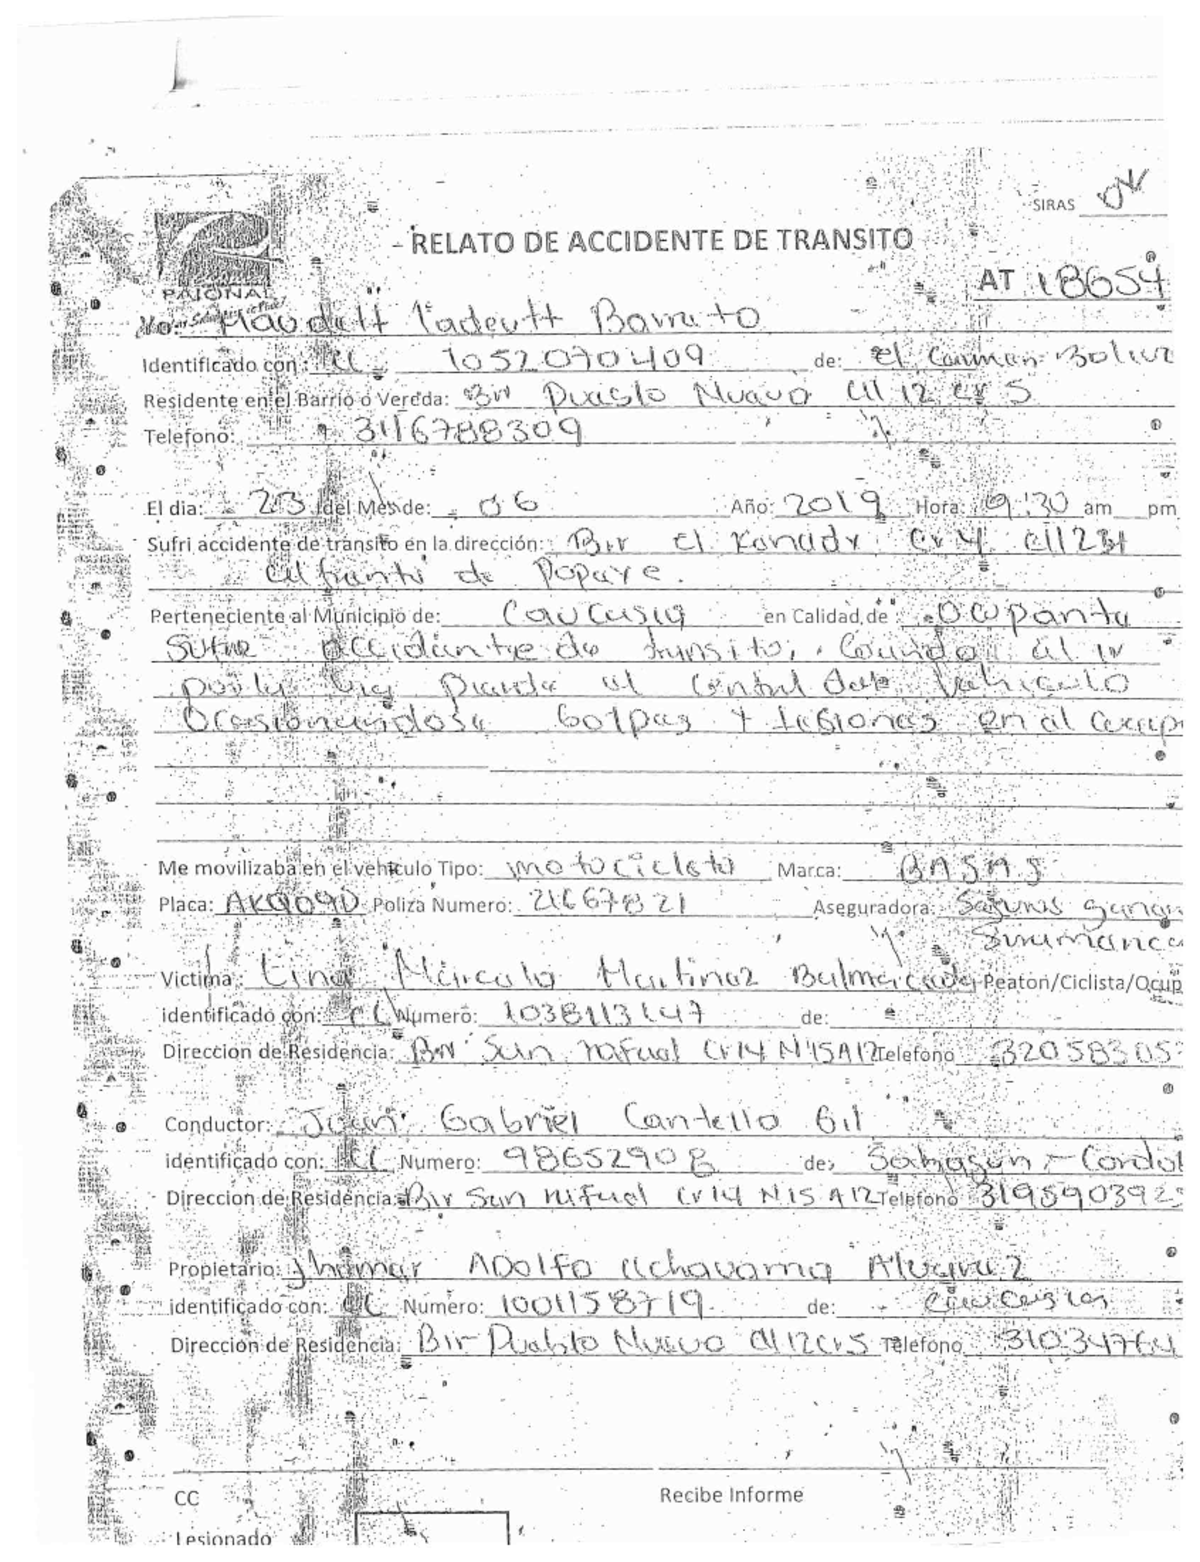 SIRAS OK
RELATO DE ACCIDENTE DE TRANSITO
PAJONAL
AT 18654
Yo: Maudett Cadeutt Barreto
Identificado con: CC 1052070409 de: el Carmen Boliv
Residente en el Barrio o Vereda: Brr Pueblo Nuevo Cll 12 cr 5
Telefono: 3116788309
El dia: 23 del Mes de: 06 Año: 2019 Hora: 9:30 am pm
Sufri accidente de transito en la dirección: Brr el Kenedy Cr 4 Cll 23
al frente de Popare.
Perteneciente al Municipio de: Caucasia en Calidad de: Ocupante
Sufre accidente de transito, Cuando al ir
por la via pierde el Control del Vehiculo
Ocasionandose Golpes y lesiones en el cuerp
Me movilizaba en el vehiculo Tipo: motocicleta Marca: BAJAJ
Placa: AKQ09D Poliza Numero: 21667821 Aseguradora: Seguros
Victima: Marcela Martinez Peaton/Ciclista/Ocup
identificado con: CC Numero: 1038113147 de:
Direccion de Residencia: Brr San rafael Cr 14 N 15 A 12 Telefono 32058305
Conductor: Juan Gabriel Cantello Gil
identificado con: CC Numero: 98652908 de: Sahagun - Cordob
Direccion de Residencia: Brr San rafael Cr 14 N 15 A 12 Telefono 319590392
Propietario: Jhomar ADOLFO Echavarria Alvarez
identificado con: CC Numero: 1001158719 de: Caucasia
Dirección de Residencia: Brr Pueblo Nuevo Cl 12 cr 5 Telefono 31034764
CC Recibe Informe
Lesionado